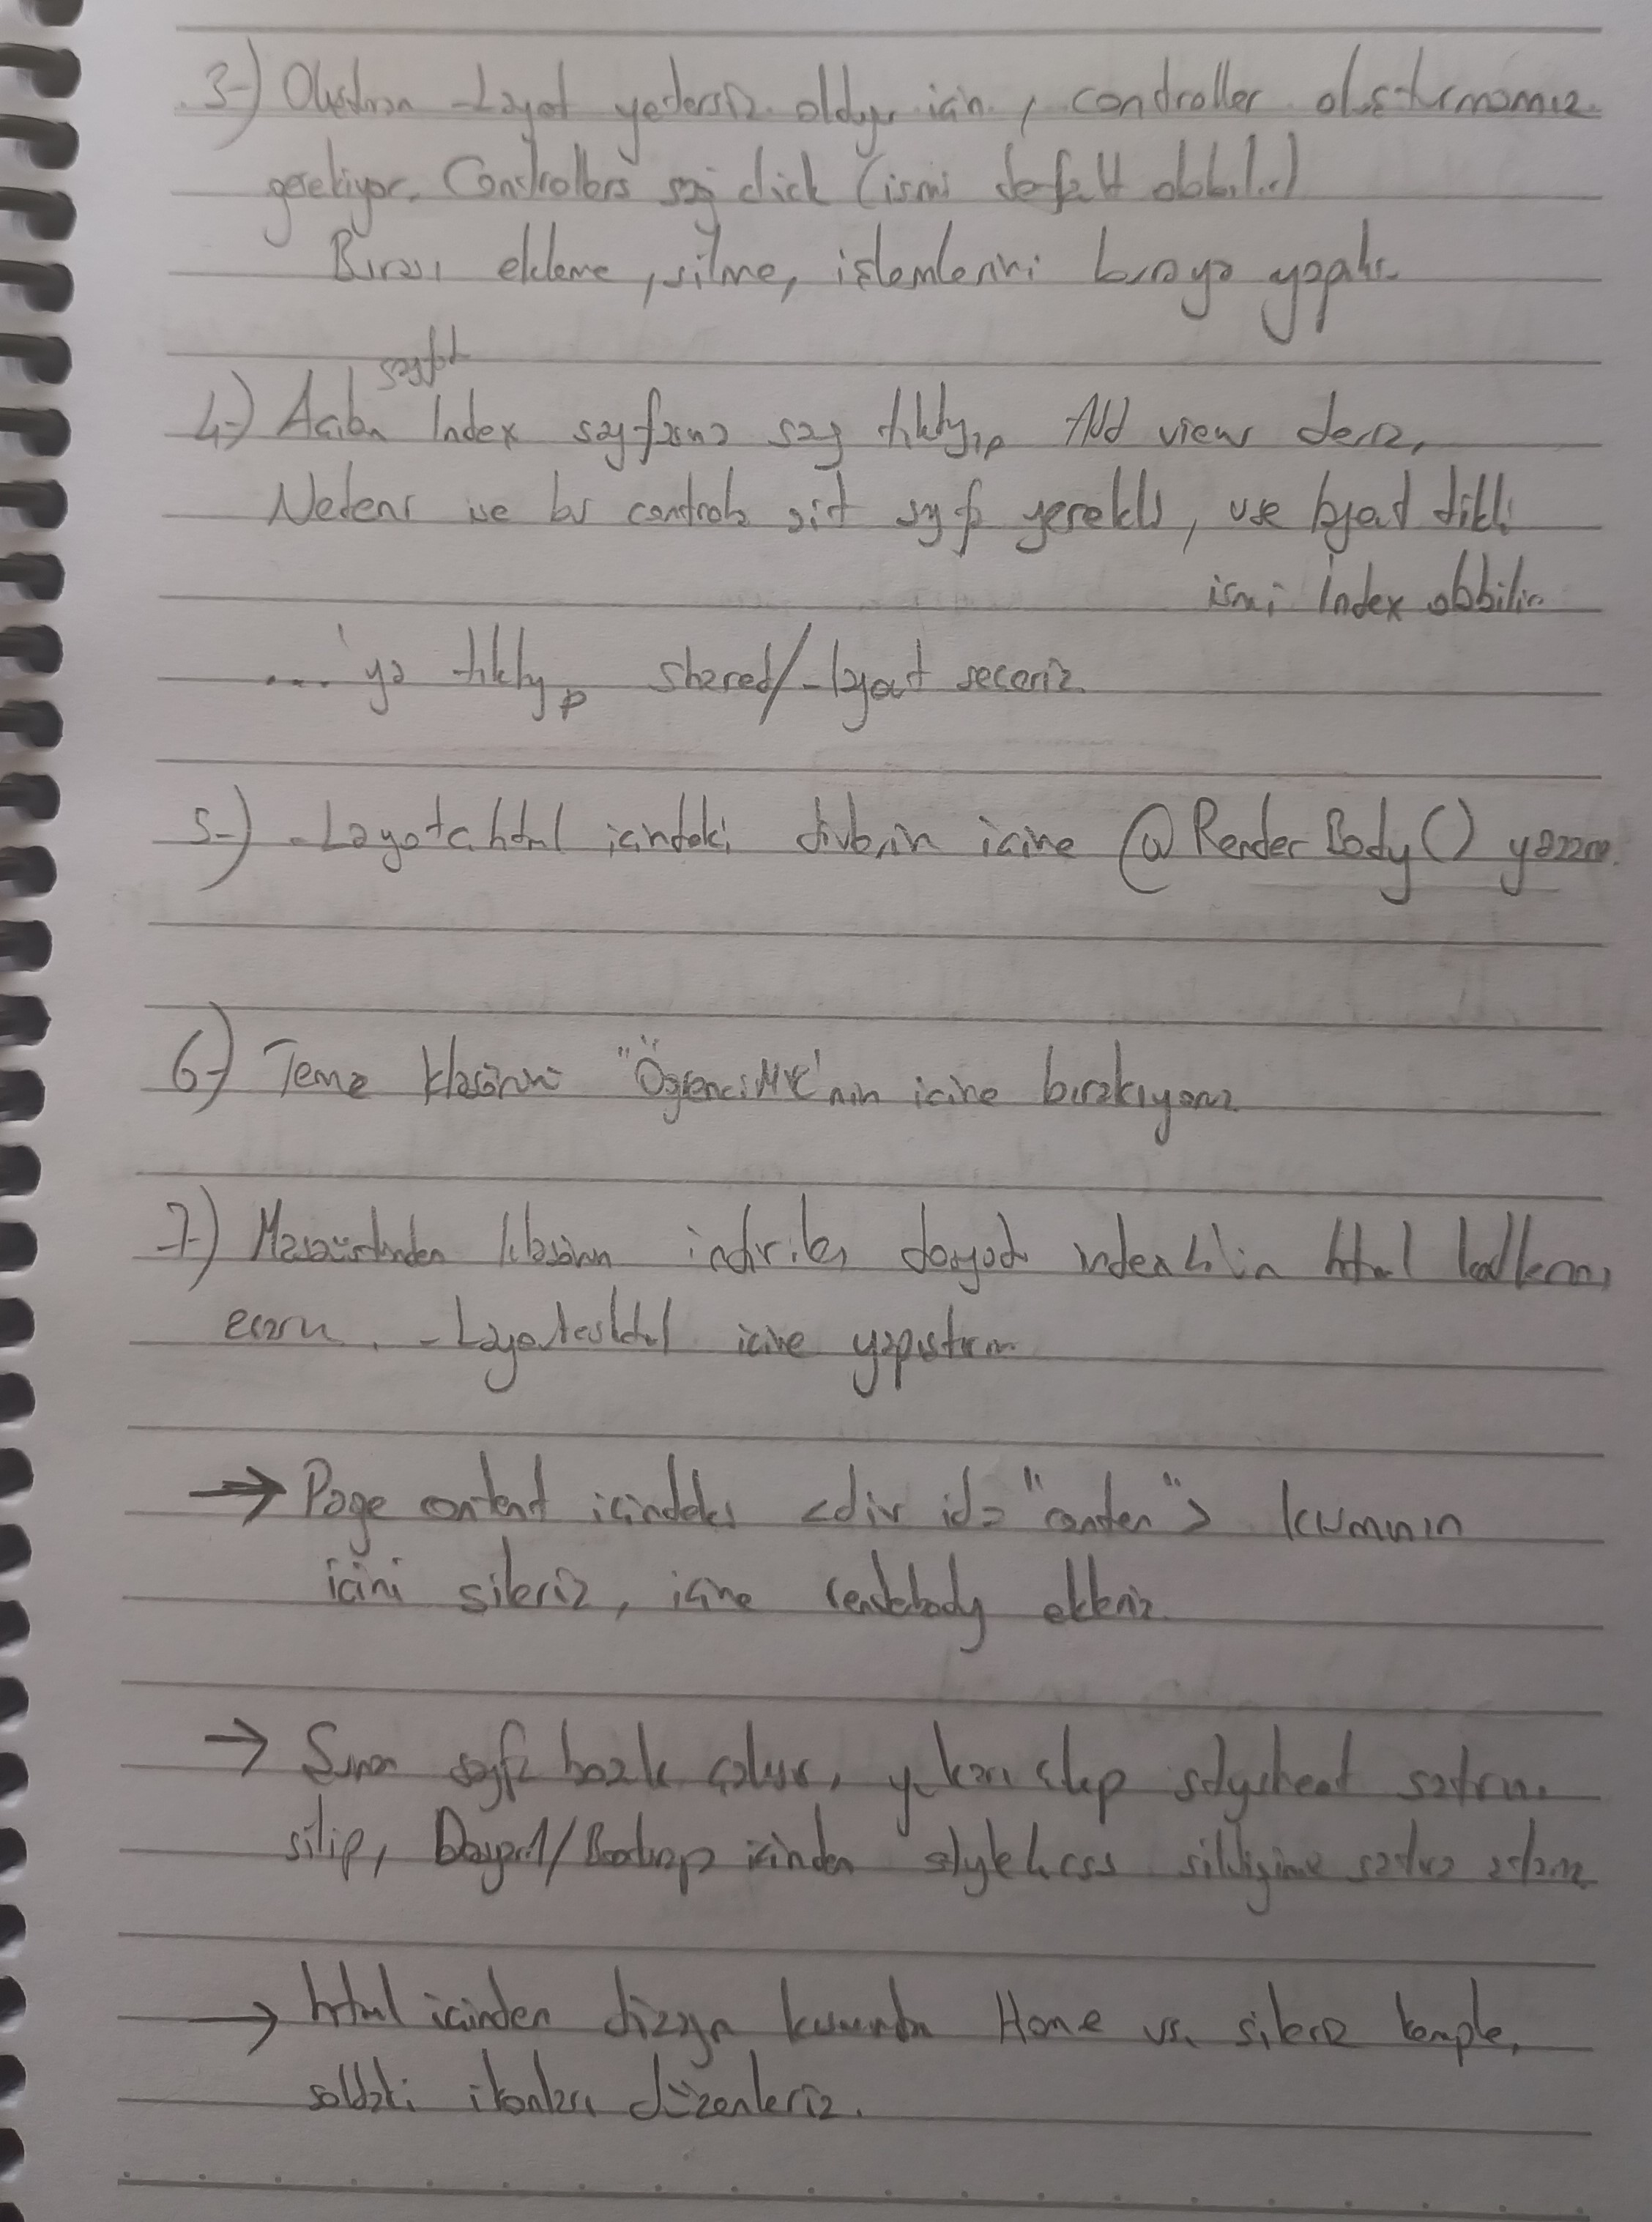 3-) Oluşturan -Layot yetersiz olduğu için, controller oluşturmamız
gerekiyor. Controllers sağ click (ismi default olabilir)
Burası ekleme, silme, işlemlerini buraya yapılır.
sayfada
4-) Açılan Index sayfasına sağ tıklayıp Add view deriz,
ve bu controla ait sayfa gerekli, use layout tikli
ismi Index olabilir.
...'ya tıklayıp shared/-layout seçeriz.
5-) -Layoutcshtml içindeki divlerin içine @RenderBody() yazarız.
6-) Tema klasörünü "ÖğrenciMVC'nin içine bırakıyoruz
7-) Masaüstünden klasörün indirilen dosyada index'in html kodlarını
-Layoutcshtml içine yapıştırırız
→ Page content içindeki <div id="conten"> kısmının
içini sileriz, içine renderbody ekleriz
→ Sonra sayfa bozuk çalışır, yukarı çıkıp stylesheet satırını
silip, Dosya1/Bootstrap içinden style.css sildiğimiz satıra atarız
→ html içinden dizayn kısmından Home vs. sileriz komple,
soldaki ikonları düzenleriz.